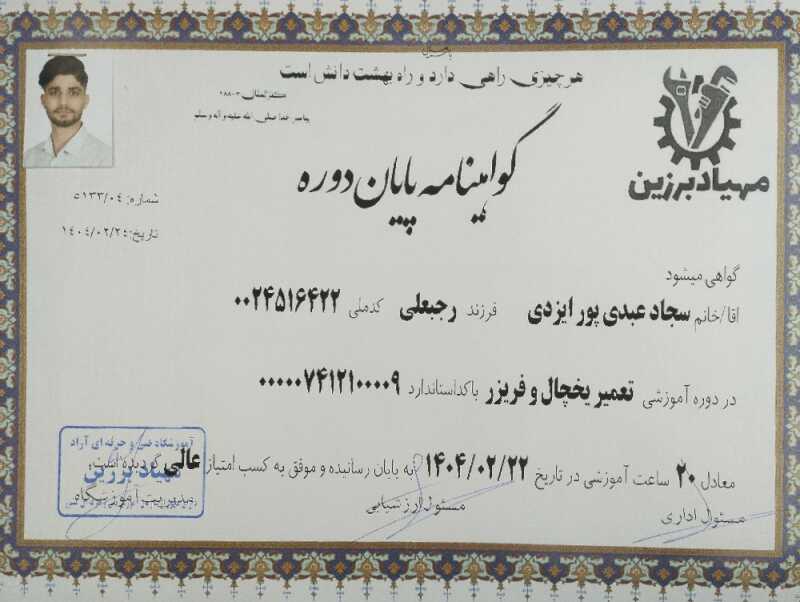 هرچیزی راهی دارد و راه بهشت دانش است
پیامبر خدا صلی الله علیه و آله و سلم
مهیاد برزین
گواهینامه پایان دوره
شماره: ۵۱۳۳/۰۴
تاریخ: ۱۴۰۴/۰۲/۲۴
گواهی میشود
اقا/خانم سجاد عبدی پور ایزدی فرزند رجبعلی کدملی ۰۰۲۴۵۱۶۴۲۲
در دوره آموزشی تعمیر یخچال و فریزر باکداستاندارد ۰۰۰۰۰۷۴۱۲۱۰۰۰۰۹
معادل ۲۰ ساعت آموزشی در تاریخ ۱۴۰۴/۰۲/۲۲ به پایان رسانیده و موفق به کسب امتیاز عالی گردیده است.
مسئول اداری
مسئول ارزشیابی
مدیریت آموزشگاه
آموزشگاه فنی و حرفه ای آزاد
مهیاد برزین